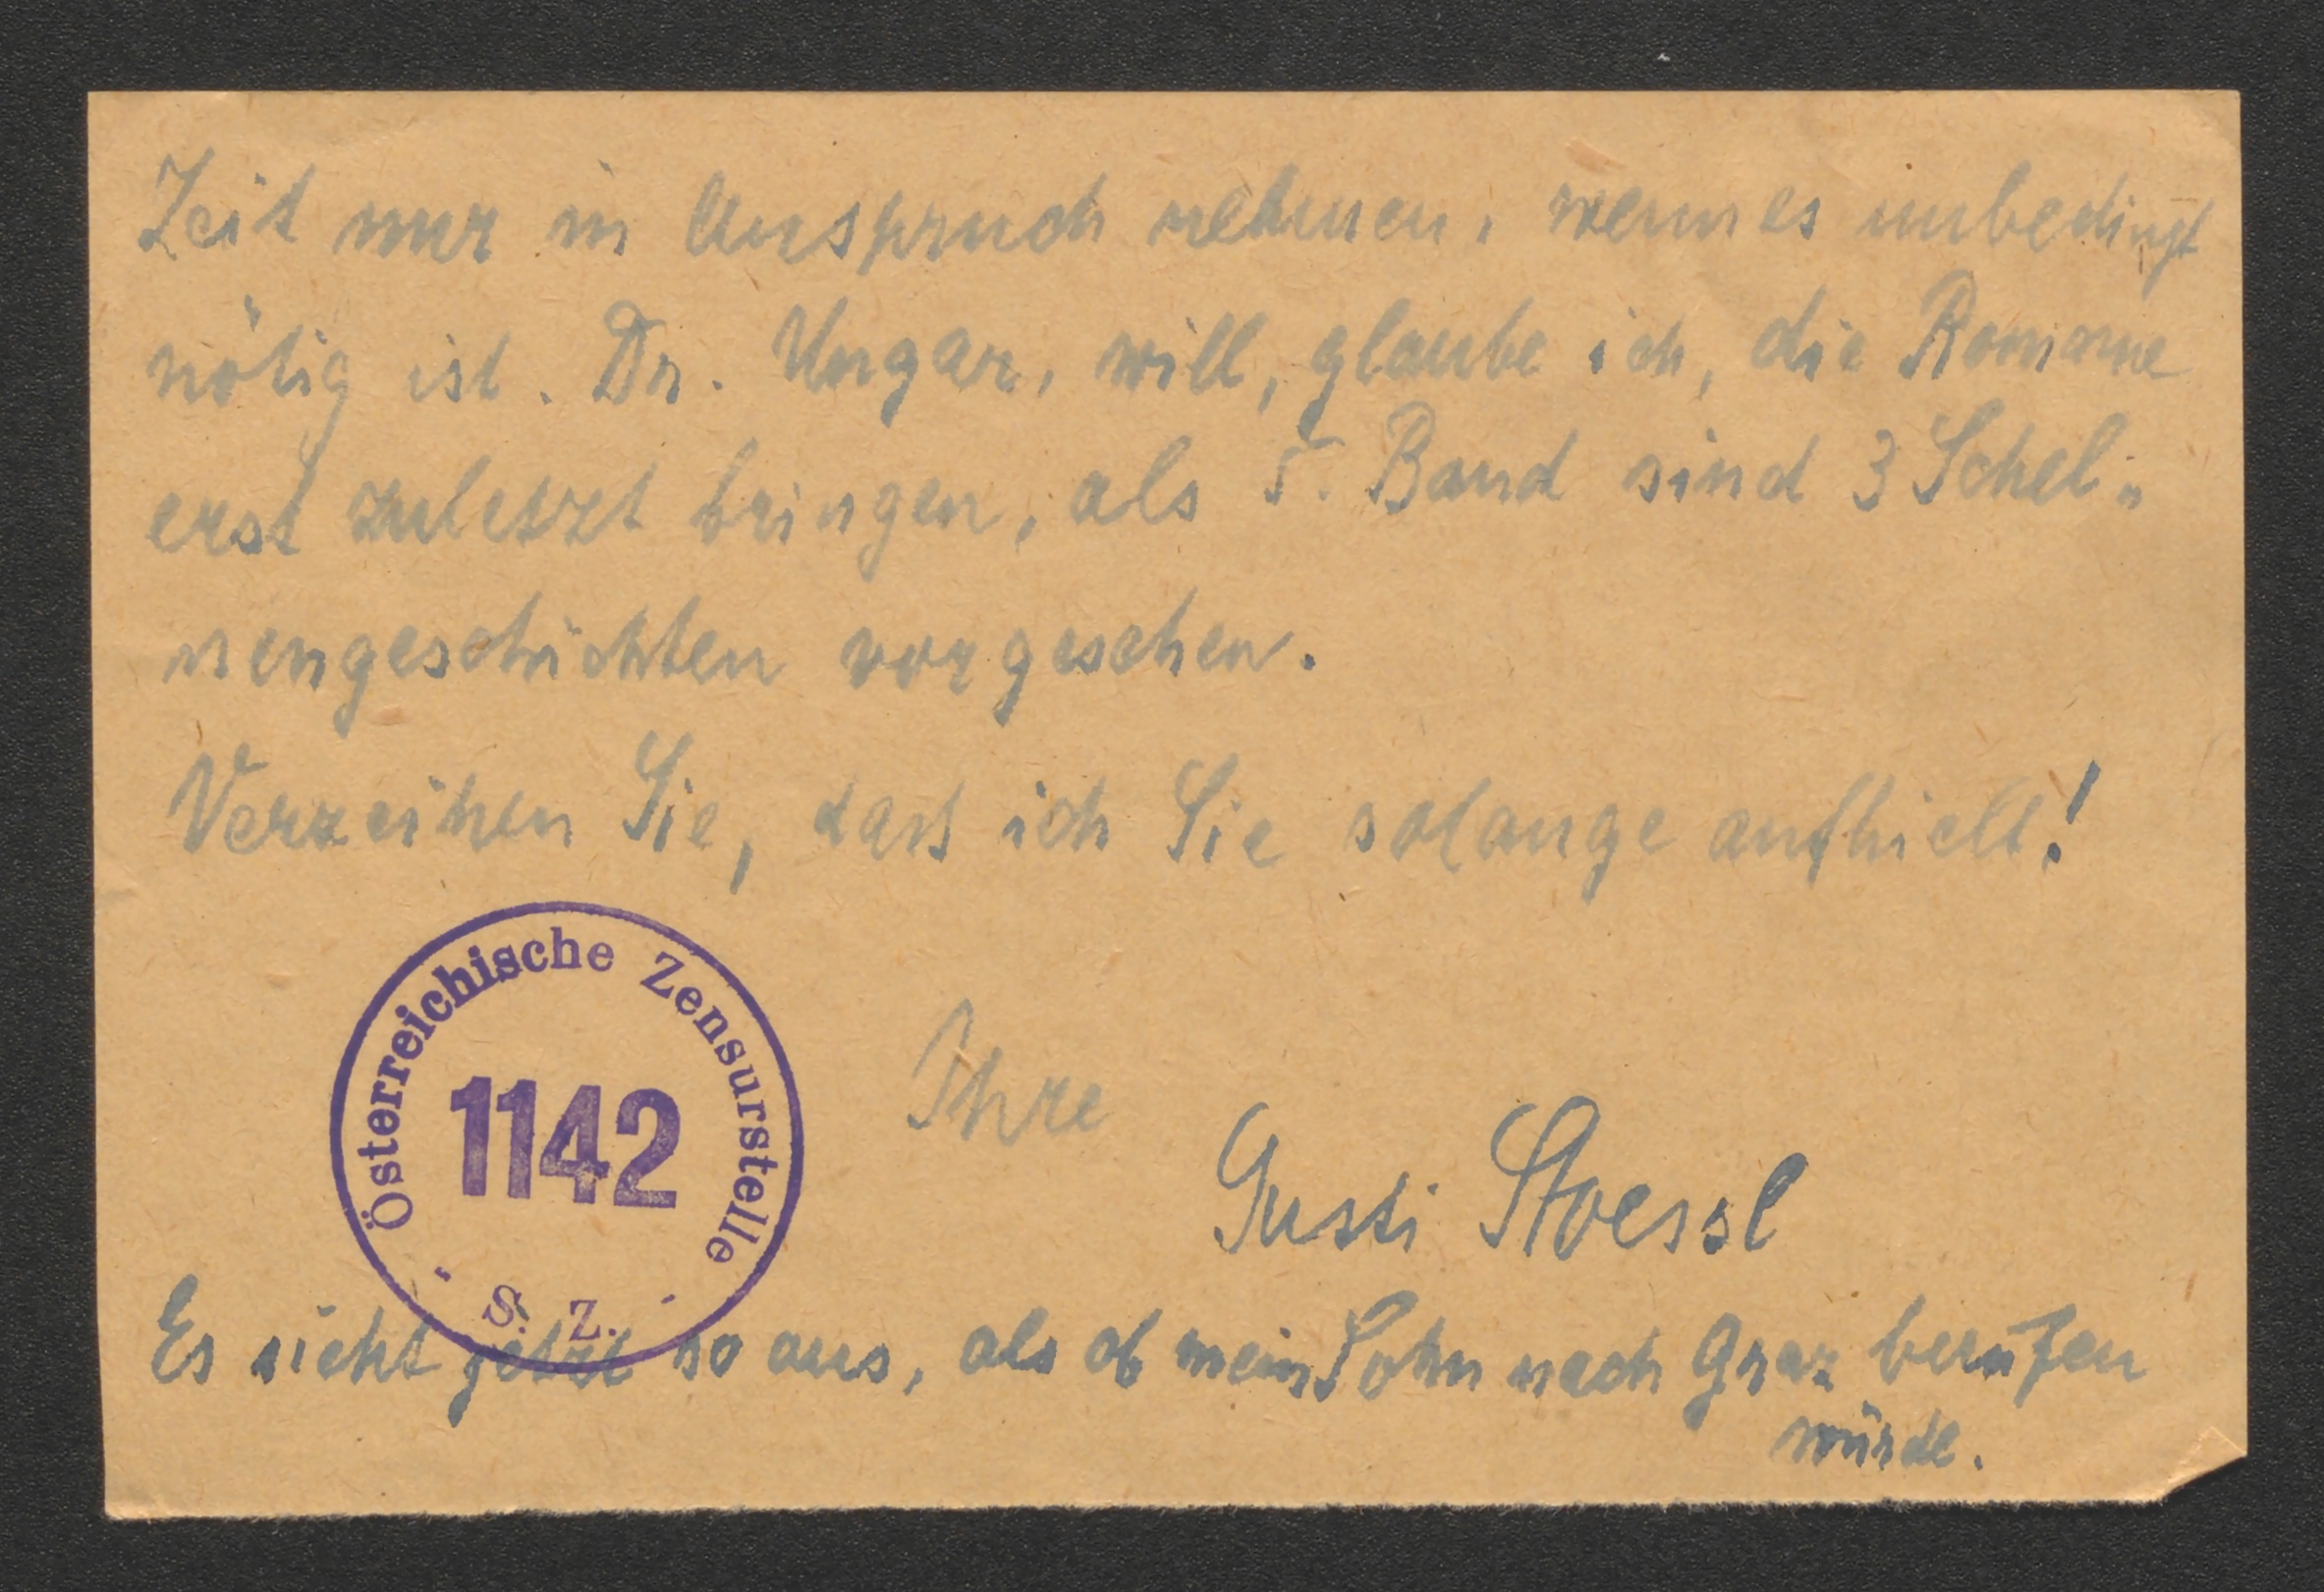 Zeit nur in Anspruch nehmen, wenn es unbedingt
nötig ist. Dr. Ungar, will, glaube ich, die Romane
erst zuletzt bringen, als 5. Band sind 3 Schel„
mengeschichten vorgesehen.
Verzeihen Sie, dass ich Sie solange aufhielt!
Österreichische Zensurstelle
1142
- S. Z. -
Ihre
Gusti Stoessl
Es sieht jetzt so aus, als ob mein Sohn nach Graz berufen
würde.